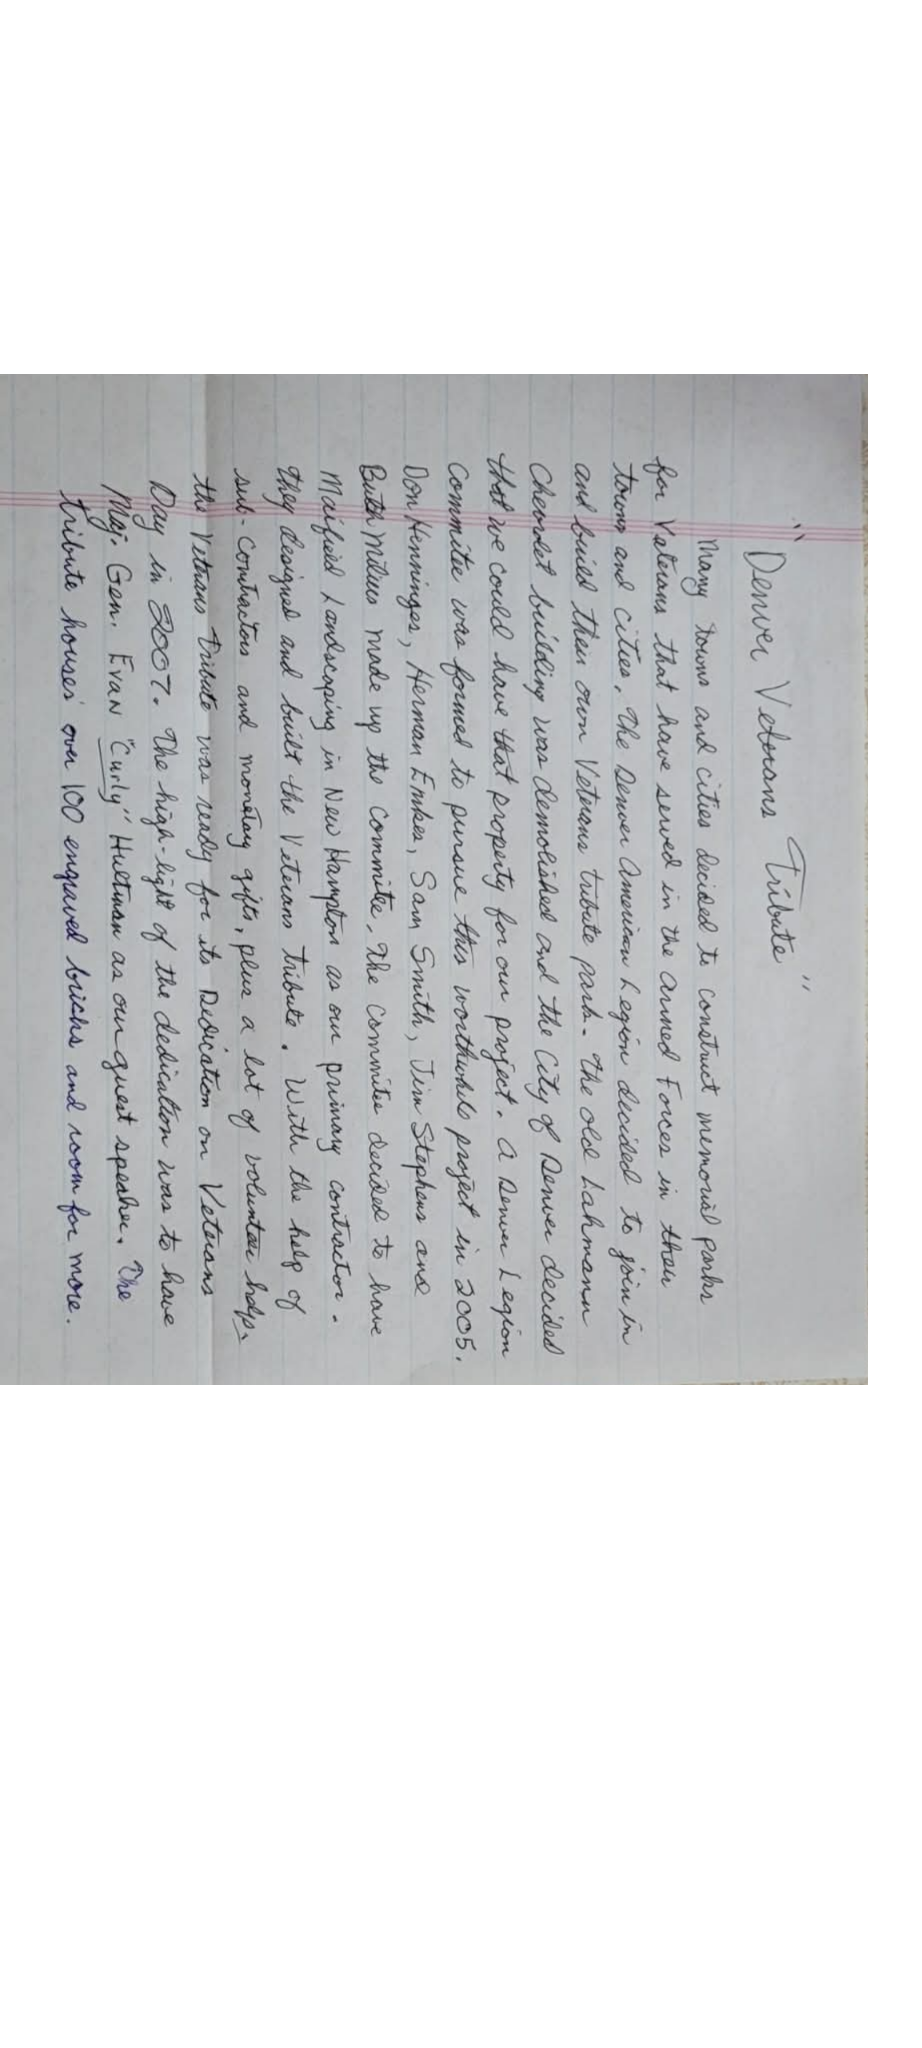 "Denver Veterans Tribute"
Many towns and cities decided to construct memorial parks
for Veterans that have served in the armed Forces in their
towns and cities. The Denver American Legion decided to join in
and build their own Veterans tribute park. The old Lahmann
Chevrolet building was demolished and the City of Denver decided
that we could have that property for our project. A Denver Legion
Committee was formed to pursue this worthwhile project in 2005.
Don Henninges, Herman Emkes, Sam Smith, Jim Stephens and
Butch Milius made up the committee. The Committee decided to have
Maifield Landscaping in New Hampton as our primary contractor.
They designed and built the Veterans Tribute. With the help of
sub-contractors and monetary gifts, plus a lot of volunteer help,
the Veterans Tribute was ready for its Dedication on Veterans
Day in 2007. The high-light of the dedication was to have
Maj. Gen. Evan "Curly" Hultman as our guest speaker. The
tribute houses over 100 engraved bricks and room for more.